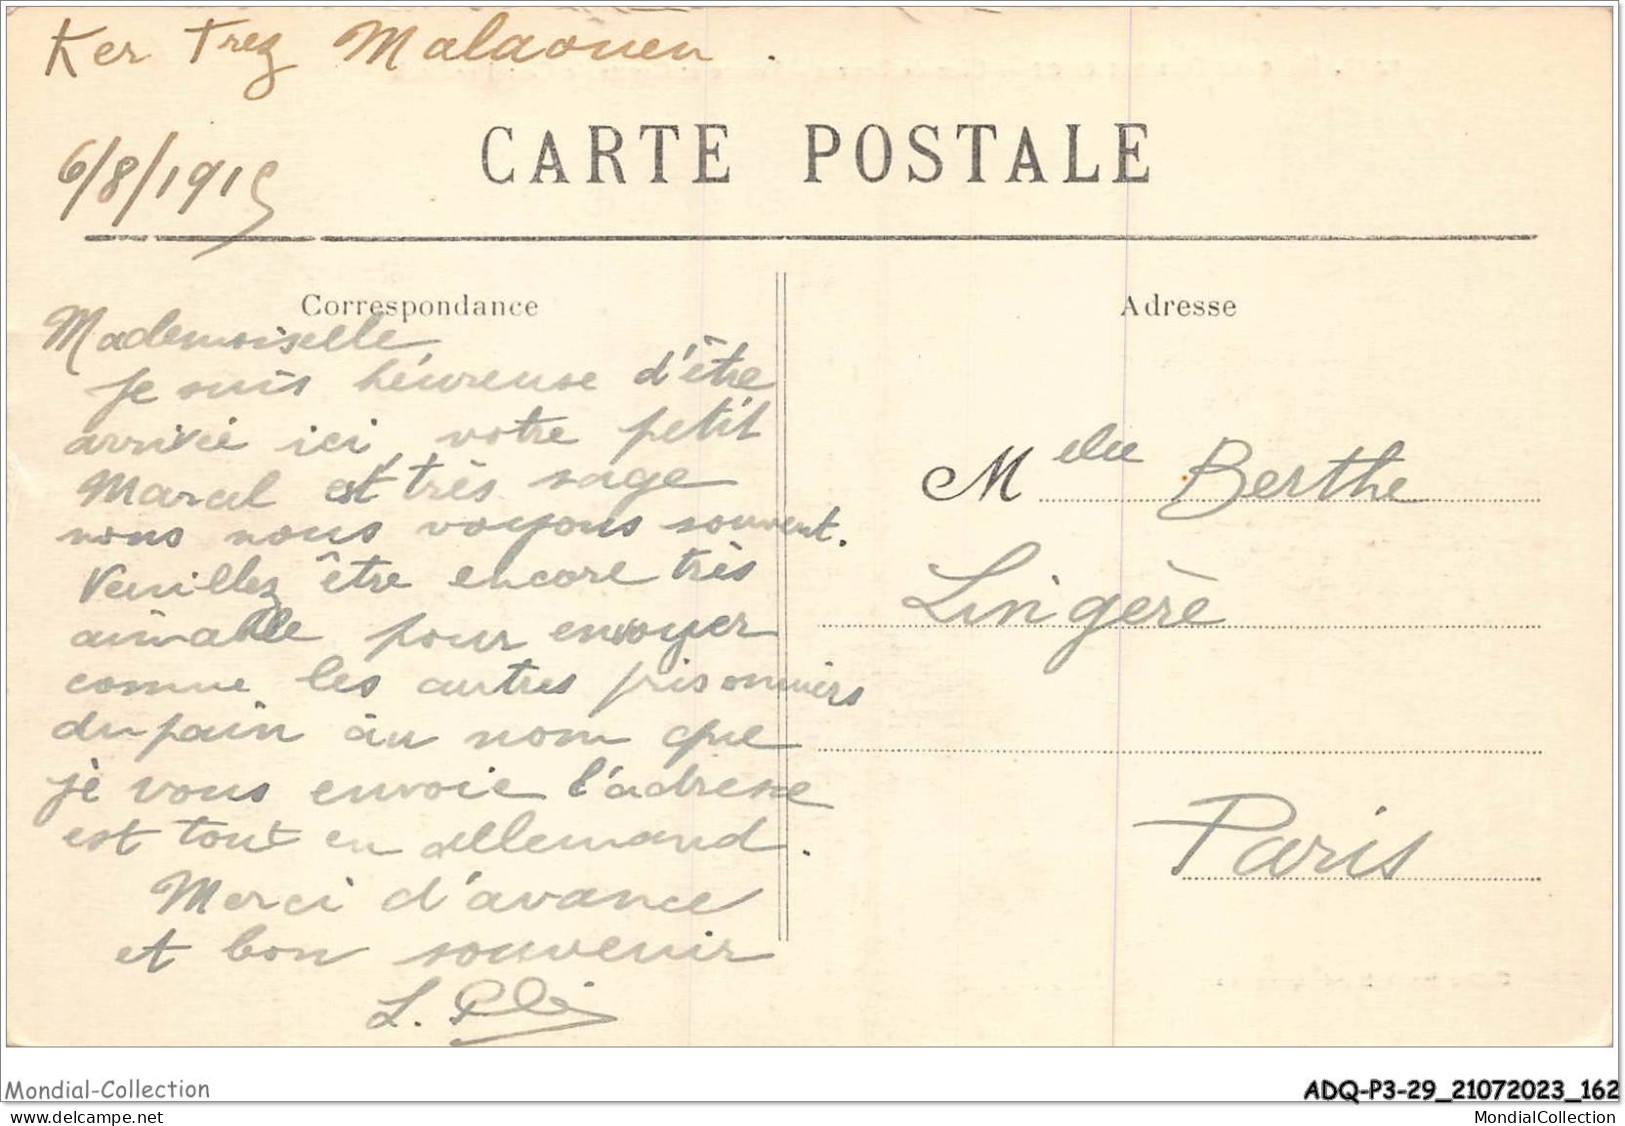 Ker Trez Malaouen.
6/8/1915
CARTE POSTALE
Correspondance
Adresse
Mademoiselle,
Je suis héureuse d'être
arrivée ici, votre petit
Marcel est très sage
nous nous voyons souvent.
Veuillez être encore très
aimable pour envoyer
comme les autres prisonniers
du pain au nom que
je vous envoie l'adresse
est tout en allemand.
Merci d'avance
et bon souvenir
L.
Melle Berthe
Lingère
Paris
Mondial-Collection
ADQ-P3-29_21072023_162
MondialCollection